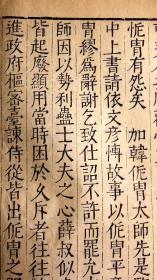 侂胄有怨矣　加韓侂胄太師先是
中上書請依文彥博故事以侂胄平
胄繆為辭謝乞致仕詔不許而罷元
師因以勢利蠱士大夫之心薛叔似
皆起廢顯用當時困於久斥者往往
進政府樞密臺諫侍從皆出侂胄之